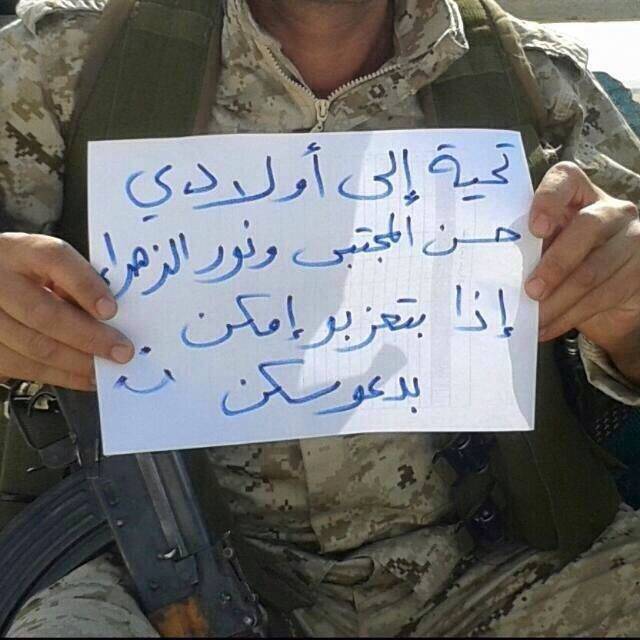 تحية إلى أولادي
حسن المجتبى ونور الزهراء
إذا بتعزبو إمكن
بدعوسكن